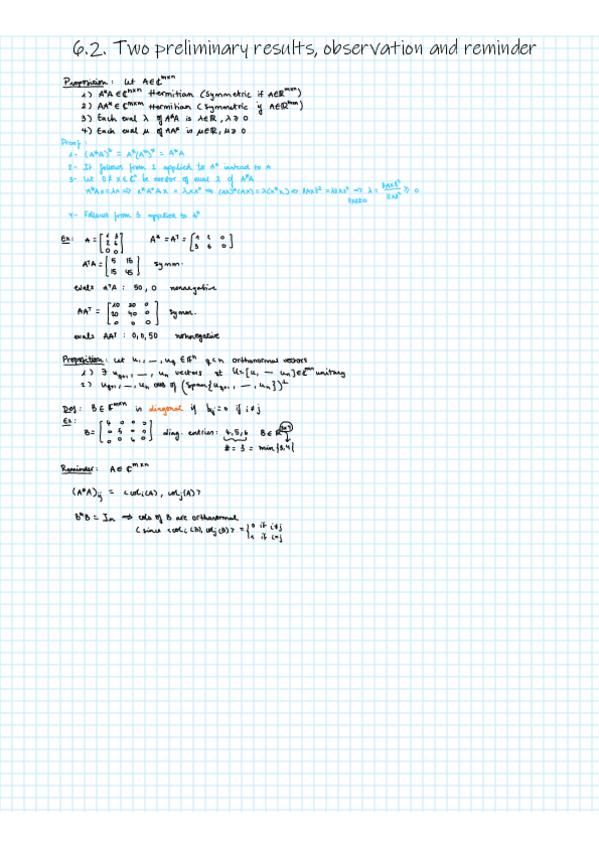 6.2. Two preliminary results, observation and reminder
Proposition: Let A∈ℂ^{m×n}
1) A*A∈ℂ^{n×n} Hermitian (Symmetric if A∈ℝ^{m×n})
2) AA*∈ℂ^{m×m} Hermitian (Symmetric if A∈ℝ^{m×n})
3) Each eval λ of A*A is λ∈ℝ, λ≥0
4) Each eval μ of AA* is μ∈ℝ, μ≥0
Proof:
1- (A*A)* = A*(A*)* = A*A
2- It follows from 1 applied to A* instead to A
3- Let 0≠x∈ℂⁿ be vector of eval λ of A*A
4- Follows from 3 applied to A*
Ex: A = [1 3; 2 6; 0 0] A* = Aᵀ = [1 2 0; 3 6 0]
AᵀA = [5 15; 15 45] symm.
evals AᵀA : 50, 0 nonnegative
AAᵀ = [10 20 0; 20 40 0; 0 0 0] symm.
evals AAᵀ : 0, 0, 50 nonnegative
Proposition: Let u₁, —, u_q ∈ℂⁿ q<n orthonormal vectors
1) ∃ u_{q+1}, —, u_n vectors st U=[u₁ — u_n]∈ℂ^{n×n} unitary
2) u_{q+1}, —, u_n of (span{u_{q+1}, —, u_n})^⊥
Def: B∈ℂ^{m×n} is diagonal if b_{ij}=0 if i≠j
Ex:
B = [4 0 0 0; 0 5 0 0; 0 0 6 0] diag. entries: 4,5,6 B∈ℝ^{3×4}
# = 3 = min{3,4}
Reminder: A∈ℂ^{m×n}
(A*A)_{ij} = <col_i(A), col_j(A)>
B*B = I_n ⇒ cols of B are orthonormal
(since <col_i(B), col_j(B)> = {0 if i≠j
1 if i=j